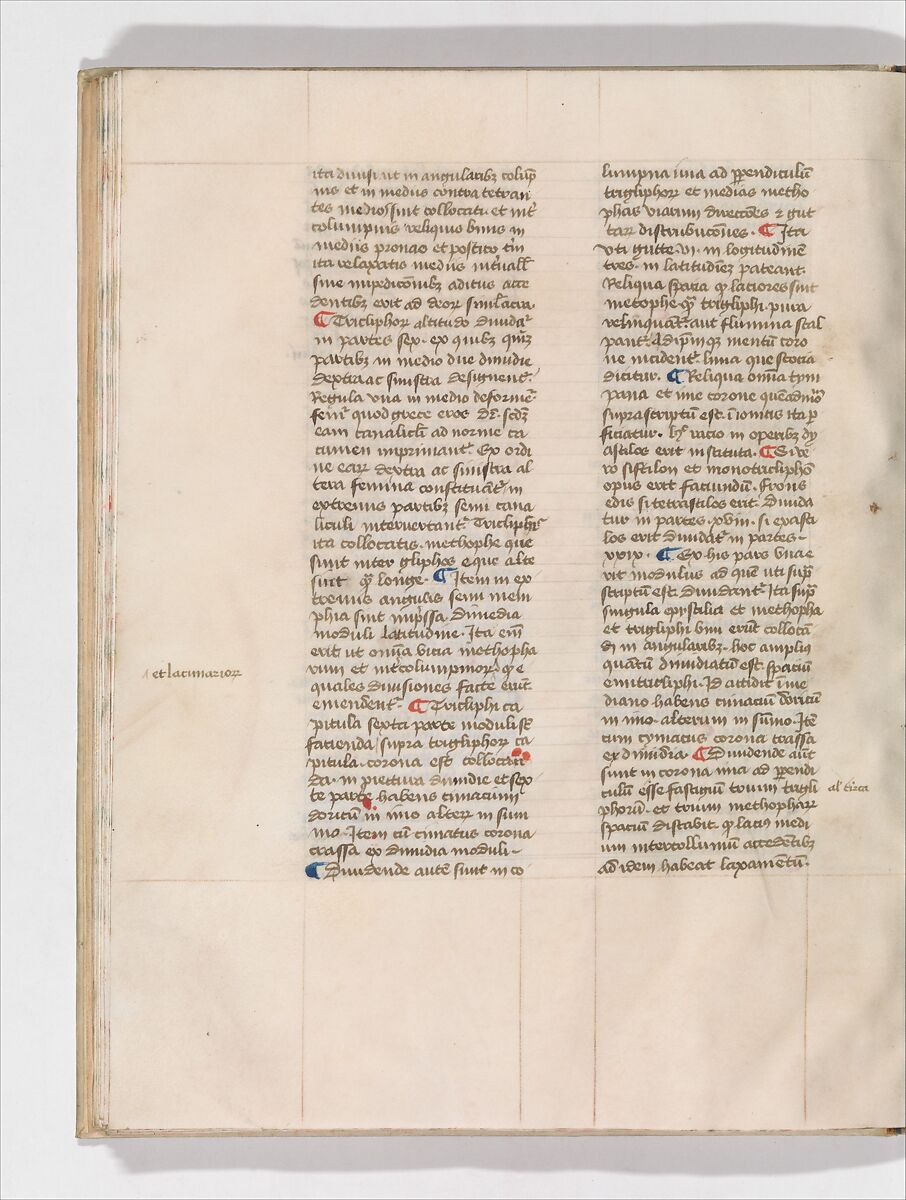 ita diuisi ut in angularibꝫ colūp
nis et in mediis contra tetran
tes medio sint collocati et int̄
columpnis reliquo binis in
mediis pronao et postico t̄m
ita relaxatis mediis int̄uall̄
sine inpedic̄oibꝫ aditus acce
dentibꝫ erit ad deoꝝ simlacra.
¶ Tricliphoꝝ altitudo diuidat̄
in partes sex. ex quibꝫ quīqꝫ
partibꝫ in medio due dimidie
dextra ac sinistra designent̄.
Regula una in medio deformet̄
femꝰ quod grece eros d̄r. scd̄ꝫ
eam canalicl̄i ad norme ca
cumen imprimant̄. Ex ordi
ne eaꝝ dextra ac sinistra al
tera femina constituat̄. in
extremis partibꝫ semi cana
liculi intervertant̄. Tricliphis
ita collocatis. methophe que
sunt inter gliphos eque alte
sint q̄ longe. ¶ Item in ex
tremis angulis semi mem
phia sint imp̄ssa dimedia
moduli latitudine. Ita eni̅
erit ut om̄a vicia methopha
rum et int̄columpnioꝝ q̄ e
quales diuisiones facte erūt
emendent̄. ¶ Tricliphi ca
pitula sexta parte moduli st̄
facienda / supra trigliphoꝝ ca
pitula. corona est collocan
da. in piectura dimidie et sex
te parte habens cimacium
doricū in imo alterꝝ in sum
mo. Item cū cimatus corona
crassa ex dimidia moduli.
¶ Diuidende autē sunt in co
et lacunarioꝝ
lumpna ima ad ꝑpendiculū
trigliphoꝝ et medias metho
phas viarum direcc̄oes ⁊ gut
taꝝ distribuc̄oes. ¶ Ita
vti gutte .vi. in logitudinē
tres. in latitudīeꝫ pateant.
Reliqua spacia q̄ laciores sint
metophe q̄ trigliphi. pura
relinquāt̄. aut flumina scal
pant̄. Ad ip̄mqꝫ mentū coro
ne incidet̄ linia que scocia
dicitur. ¶ Reliqua om̄ia tym
pana et ime corone quēadmō
suprascriptū est. ī ionicis ita ꝑ
ficiatur. h̄ꝰ racio in operibꝫ dy
astilos erit instituta. ¶ Si ve
ro sistilon et monotricliphō
opus erit faciundū. frons
edis si tetrastilos erit. diuida
tur in partes .xviii. si exasti
los erit diuidat̄ in partes
.xxix. ¶ Ex his pars una e
rit modulus ad quē uti sup̄
scriptū est. diuidant̄. Ita sup̄
singula epistilia et methopha
et trigliphi bini erūt collocā
di in angularibꝫ. hoc amplius
quātū dimidiatū est. spaciū
emitrigliphi. Id accidit ī me
diano habens cimaciū doricum
in imo. alterum in sūmo. Itē
cum cymacius corona crassa
ex dimidia. ¶ Diuidende aūt
sunt in corona ima ad ꝑpendi
culū esse fastigiū trium trigli
phorū. et trium methophaꝝ
spaciū distabit. q̄ lacius medi
um intercollumniū accedētibꝫ
ad edem habeat laxamētū.
al̄ circa